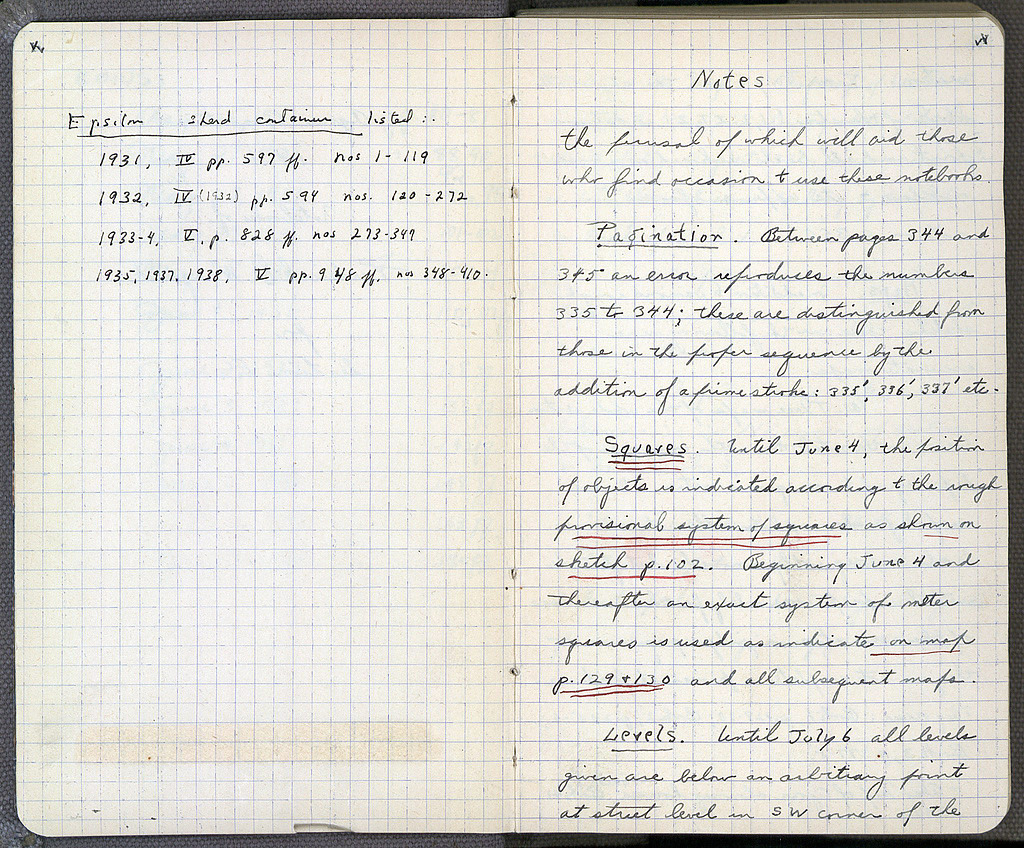 Epsilon sherd container listed :.
1931, IV pp. 597 ff. nos 1 - 119
1932, IV (1932) pp. 594 nos. 120 - 272
1933-4, V, p. 828 ff. nos 273-347
1935, 1937, 1938, V pp. 948 ff. nos 348-410.
Notes
the perusal of which will aid those
who find occasion to use these notebooks.
Pagination. Between pages 344 and
345 an error reproduces the numbers
335 to 344; these are distinguished from
those in the proper sequence by the
addition of a prime stroke: 335', 336', 337' etc.
Squares. Until June 4, the position
of objects is indicated according to the rough
provisional system of squares as shown on
sketch p. 102. Beginning June 4 and
thereafter an exact system of meter
squares is used as indicate on map
p. 129 & 130 and all subsequent maps.
Levels. Until July 6 all levels
given are below an arbitrary point
at street level in SW corner of the